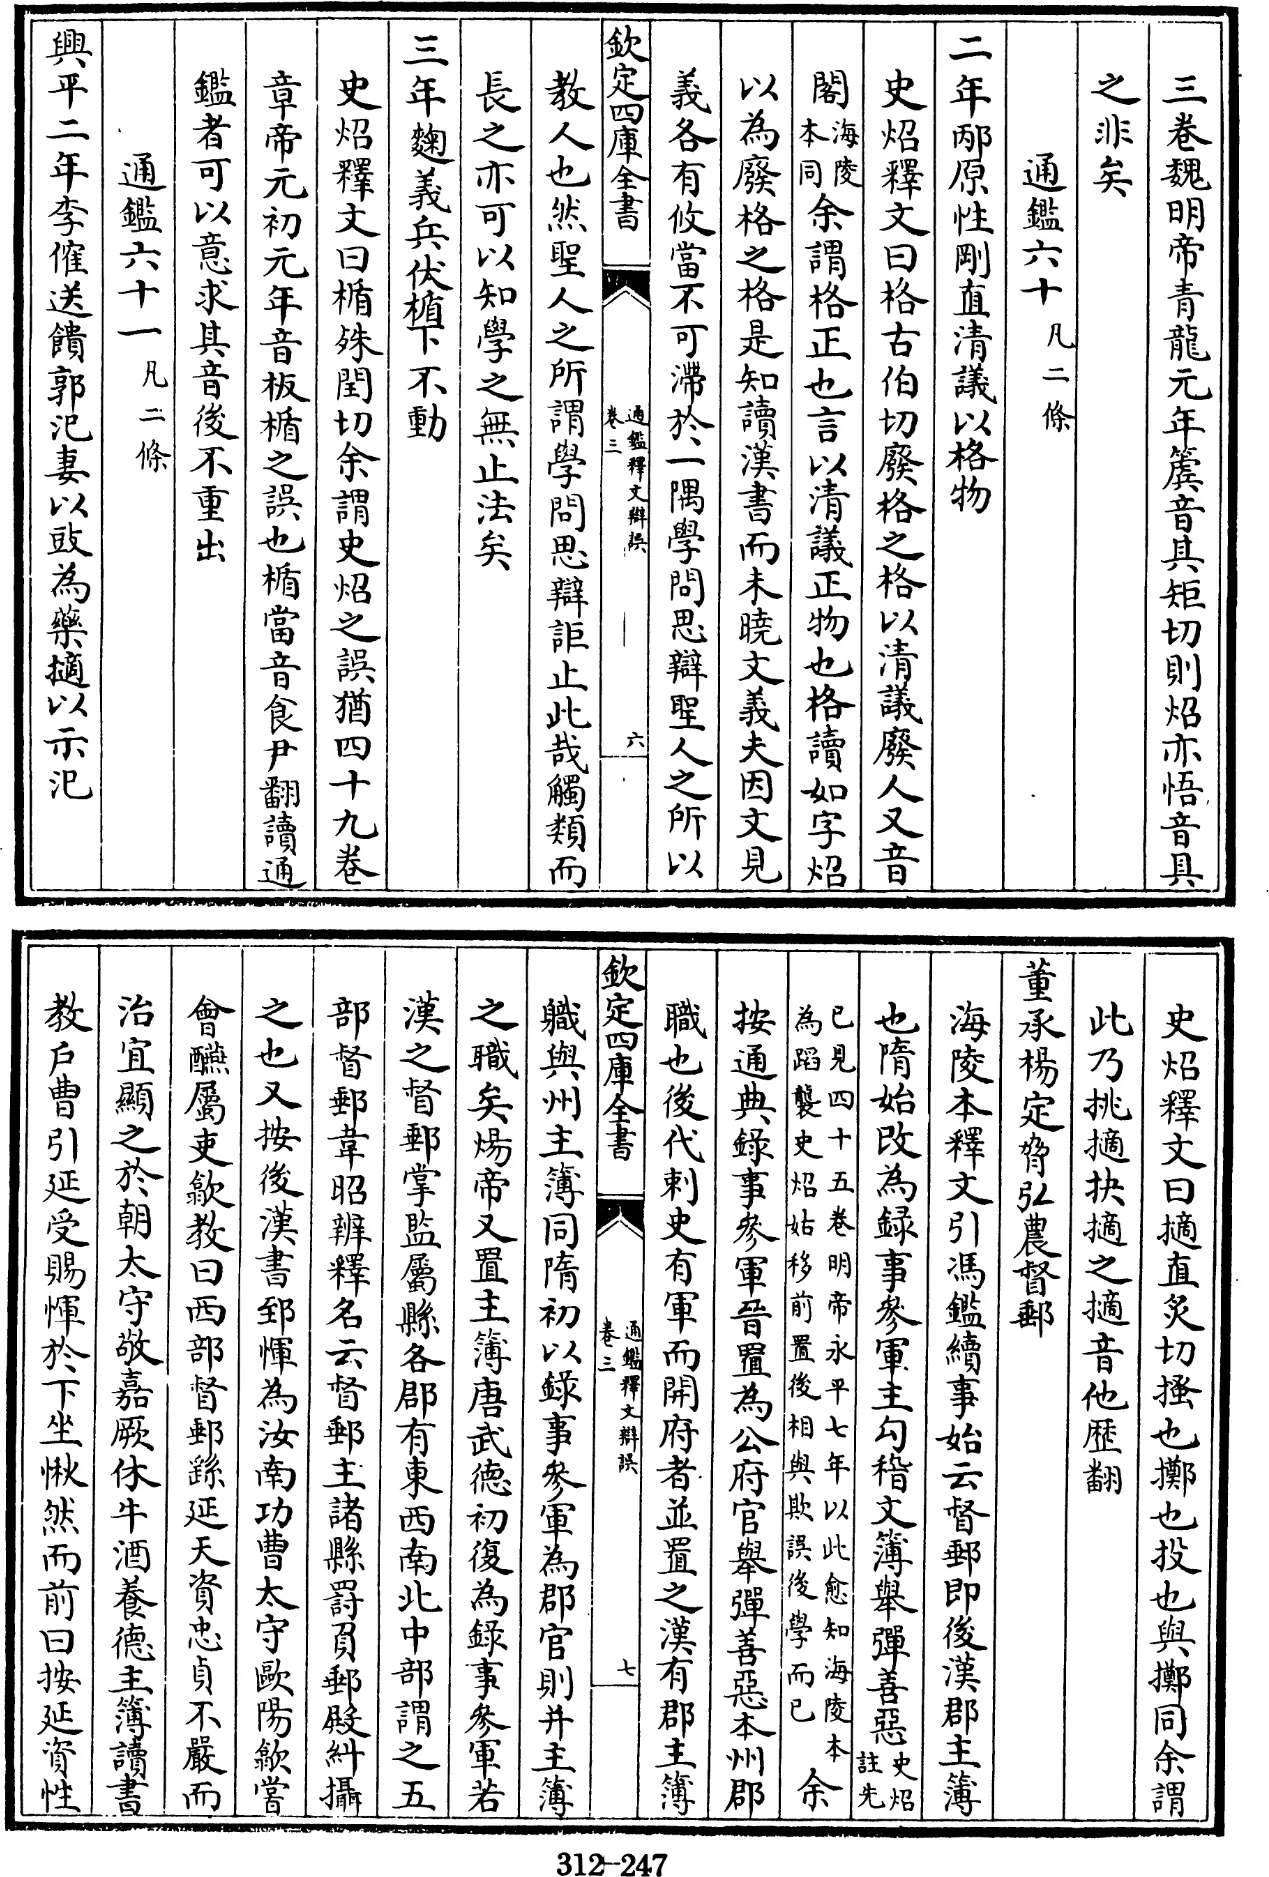 三卷魏明帝青龍元年簴音其矩切則炤亦悟音具
之非矣
通鑑六十 凡二條
二年邴原性剛直清議以格物
史炤釋文曰格古伯切廢格之格以清議廢人又音
閣海陵本同余謂格正也言以清議正物也格讀如字炤
以為廢格之格是知讀漢書而未曉文義夫因文見
義各有攸當不可滯於一隅學問思辯聖人之所以
欽定四庫全書 通鑑釋文辯誤 卷三 六
教人也然聖人之所謂學問思辯詎止此哉觸類而
長之亦可以知學之無止法矣
三年麴義兵伏楯下不動
史炤釋文曰楯殊閏切余謂史炤之誤猶四十九卷
章帝元初元年音板楯之誤也楯當音食尹翻讀通
鑑者可以意求其音後不重出
通鑑六十一 凡二條
興平二年李傕送饋郭汜妻以豉為藥擿以示汜
史炤釋文曰擿直炙切搔也擲也投也與擲同余謂
此乃挑擿抉擿之擿音他歷翻
董承楊定脅弘農督郵
海陵本釋文引馮鑑續事始云督郵即後漢郡主簿
也隋始改為録事參軍主勾稽文簿舉彈善惡史炤註先
已見四十五卷明帝永平七年以此愈知海陵本為蹈襲史炤姑移前置後相與欺誤後學而已余
按通典錄事參軍晉置為公府官舉彈善惡本州郡
職也後代刺史有軍而開府者並置之漢有郡主簿
欽定四庫全書 通鑑釋文辯誤 卷三 七
職與州主簿同隋初以錄事參軍為郡官則幷主簿
之職矣煬帝又置主簿唐武德初復為錄事參軍若
漢之督郵掌監屬縣各郡有東西南北中部謂之五
部督郵韋昭辨釋名云督郵主諸縣罰負郵殿糾攝
之也又按後漢書郅惲為汝南功曹太守歐陽歙嘗
會醼屬吏歙教曰西部督郵繇延天資忠貞不嚴而
治宜顯之於朝太守敬嘉厥休牛酒養德主簿讀書
教戶曹引延受賜惲於下坐愀然而前曰按延資性
312-247